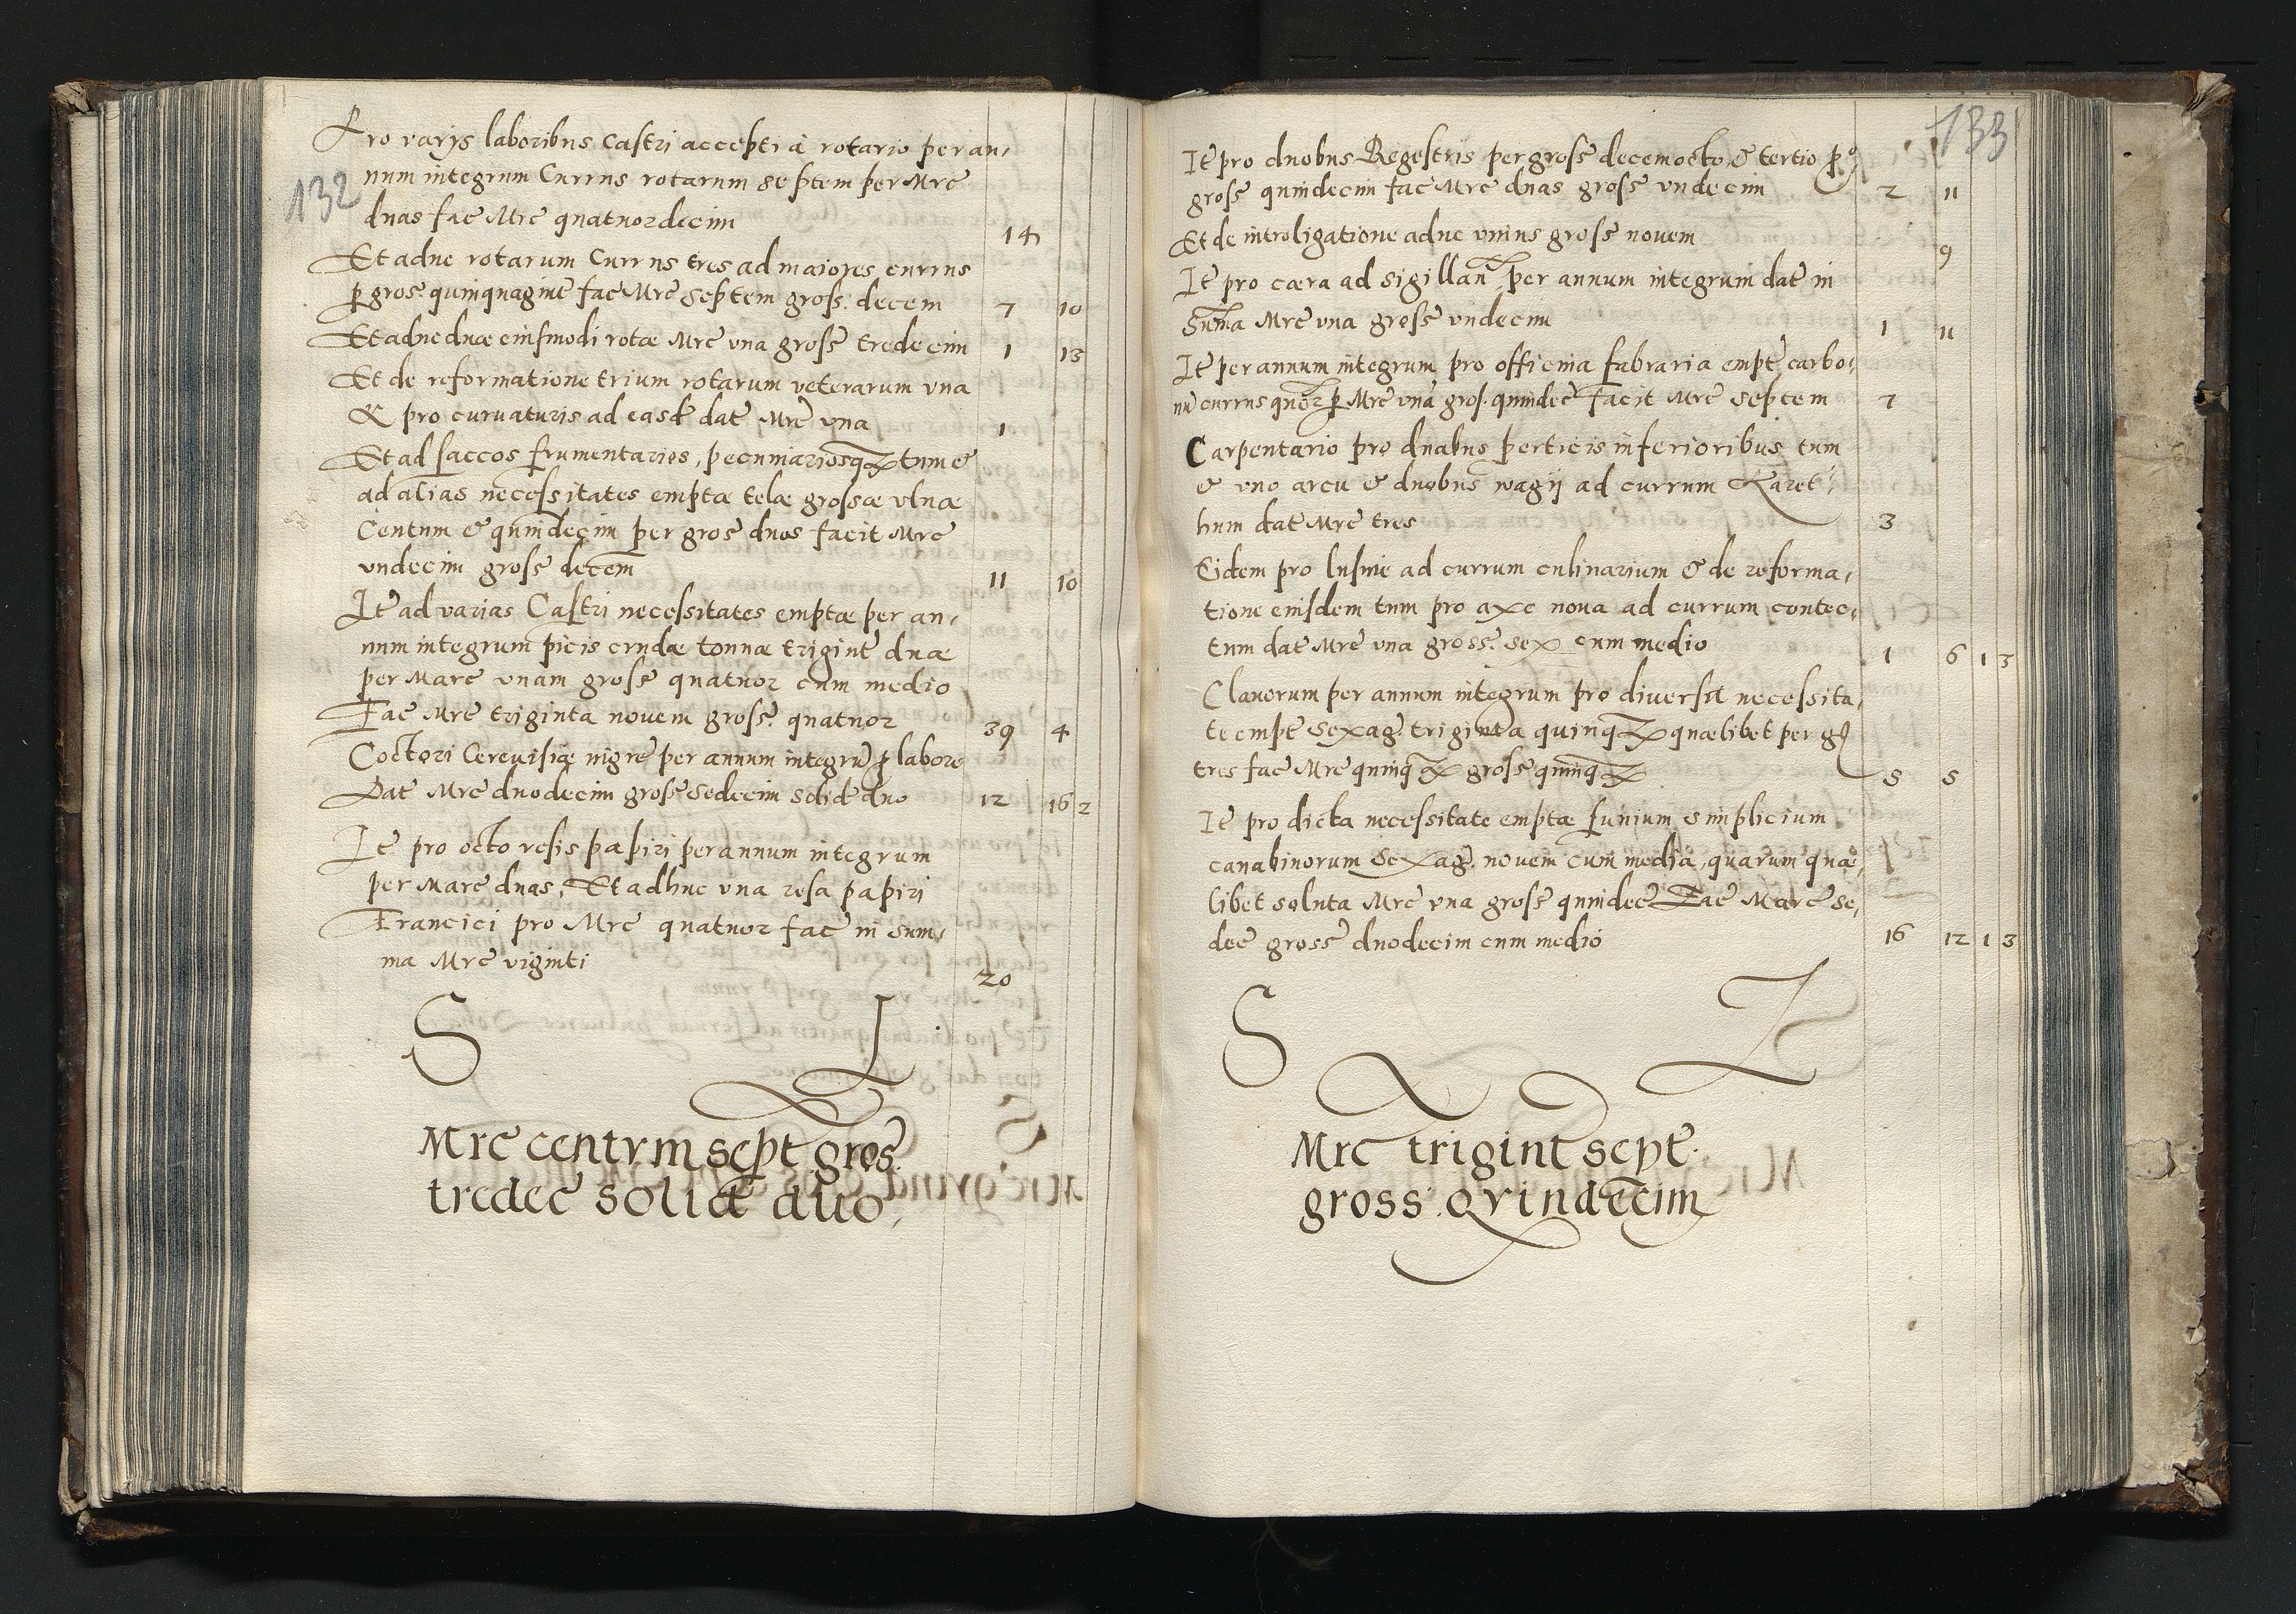 132
Pro varijs laboribus Castri accepti à rotario per an,
num integrum Currus rotarum septem per Mrc
duas fac Mrc quatuordecim 14
Et adhuc rotarum Currus tres ad maiores currus
p gros. quinquagint fac Mrc septem gross: decem 7 10
Et adhuc duæ eiusmodi rotæ Mrc vna gross tredecim 1 13
Et de reformatione trium rotarum veterarum vna
& pro curuaturis ad easd dat Mrc vna 1
Et ad saccos frumentarios, pecuniariosqz tum &
ad alias necessitates emptæ telæ grossæ vlnæ
Centum & quindecim per gros duos facit Mrc
vndecim gross decem 11 10
It ad varias Castri necessitates emptæ per an,
num integrum picis crudæ tonnæ trigint duæ
per Marc vnam gross quatuor cum medio
Fac Mrc triginta novem gross. quatuor 39 4
Coctori Cereuisiæ nigre per annum integrũ p labore
Dat Mrc duodecim gross sedecim solid duo 12 16 2
It pro octo resis papiri per annum integrum
per Marc duas, Et adhuc vna resa papiri
Francici pro Mrc quatuor fac in sum,
ma Mrc viginti 20
S
Mrc centvm sept gros.
tredec solid duo,
133
It pro duobus Regestris per gross decemocto & tertio p
gross quindecim fac Mrc duas gross vndecim 2 11
Et de introligatione adhuc vnius gross novem 9
It pro cæra ad sigilland per annum integrum dat in
Suma Mrc vna gross vndecim 1 11
It per annum integrum pro officina fabraria empt carbo,
nũ currus quor p Mrc vna gros. quindec facit Mrc septem 7
Carpentario pro duabus perticis inferioribus tum
& vno arcu & duobus wagij ad currum Karet,
hum dat Mrc tres 3
Eidem pro lusnie ad currum culinarium & de reforma,
tione eiusdem tum pro axe nova ad currum contec,
tum dat Mrc vna gross. sex cum medio 1 6 1 3
Clauorum per annum integrum pro diversa necessita,
te empt sexag. triginta quinqz quælibet per g
tres fac Mrc quinqz gross quinqz 5 5
It pro dicta necessitate emptæ funium simplicium
canabinorum sexag. novem cum media, quarum quæ,
libet soluta Mrc vna gross quindec Fac Marc se,
dec gross duodecim cum medio 16 12 1 3
S
Mrc trigint sept.
gross. qvindecim